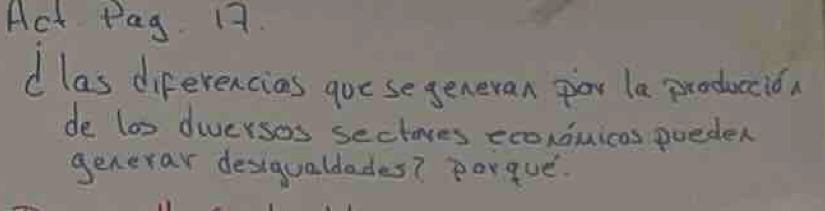 Act Pag. 17.
¿las diferencias que se generan por la producción
de los diversos sectores económicos pueden
generar desigualdades? porqué.